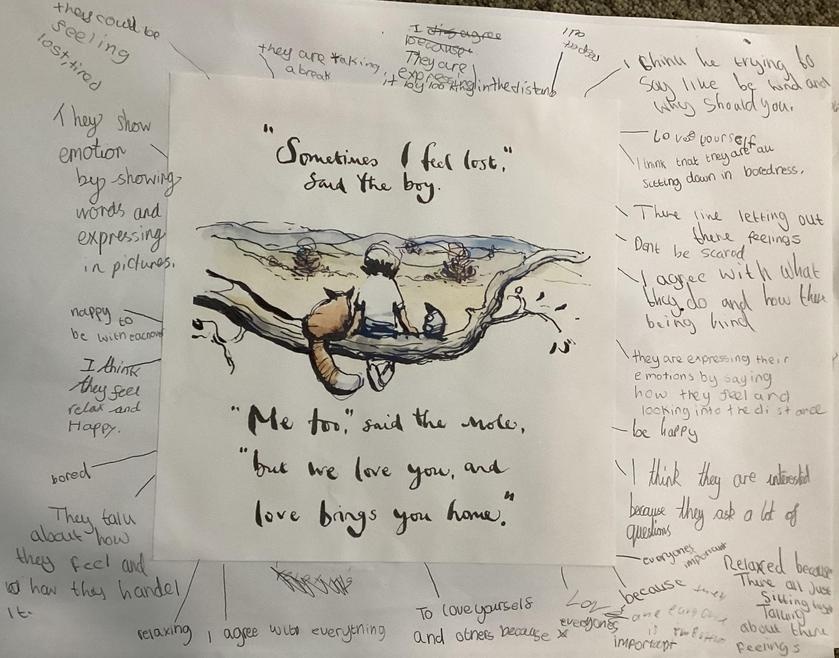 they could be
feeling
lost, tired
they are taking
a break
I disagree
because
They are
expressing
it by looking in the distance
I think he trying to
say like be kind and
why should you.
They show
emotion
by showing
words and
expressing
in pictures.
"Sometimes I feel lost,"
said the boy.
Love yourself
I think that they are all
sitting down in boredness.
There line letting out
there feelings
Dont be scared
I agree with what
they do and how there
being kind
happy to
be with eachother
I think
they feel
relax and
Happy.
they are expressing their
emotions by saying
how they feel and
looking into the distance
be happy
"Me too," said the mole,
"but we love you, and
love brings you home."
bored
I think they are interested
because they ask a lot of
questions
They talk
about how
they feel and
how they handel
it.
everyones important
Relaxed because
There all just
Sitting
Talking
about there
feelings
relaxing
I agree with everything
To love yourself
and others because
everyones
important
Love
because they
are
is